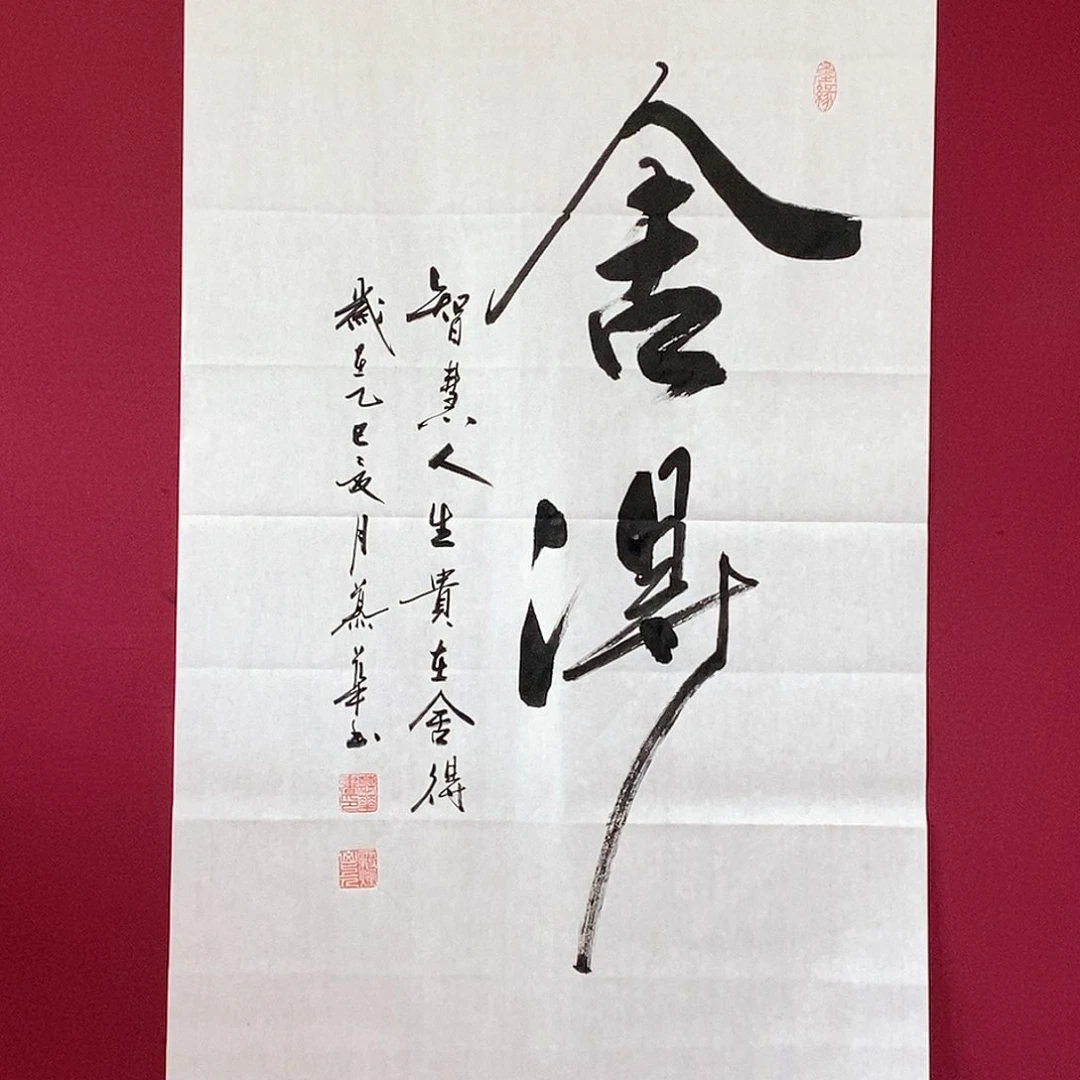 墨緣
舍得
智慧人生貴在舍得
歲在乙巳亥月慕華书